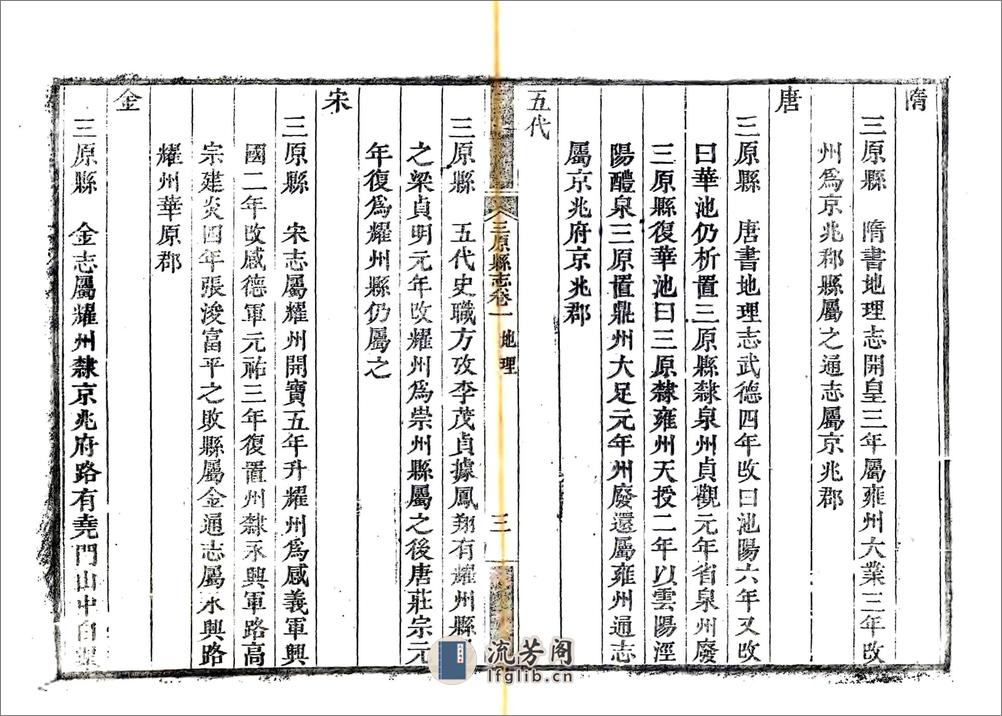 隋
三原縣　隋書地理志開皇三年屬雍州大業三年改
州爲京兆郡縣屬之通志屬京兆郡
唐
三原縣　唐書地理志武德四年改曰池陽六年又改
曰華池仍析置三原縣隸泉州貞觀元年省泉州廢
三原縣復華池曰三原隸雍州天授二年以雲陽涇
陽醴泉三原置鼎州大足元年州廢還屬雍州通志
屬京兆府京兆郡
五代
三原縣志卷一　地理　三
三原縣　五代史職方攷李茂貞據鳳翔有耀州縣
之梁貞明元年改耀州爲崇州縣屬之後唐莊宗元
年復爲耀州縣仍屬之
宋
三原縣　宋志屬耀州開寶五年升耀州爲感義軍興
國二年改感德軍元祐三年復置州隸永興軍路高
宗建炎四年張浚富平之敗縣屬金通志屬永興路
耀州華原郡
金
三原縣　金志屬耀州隸京兆府路有堯門山中白渠
流芳阁
lfglib.cn